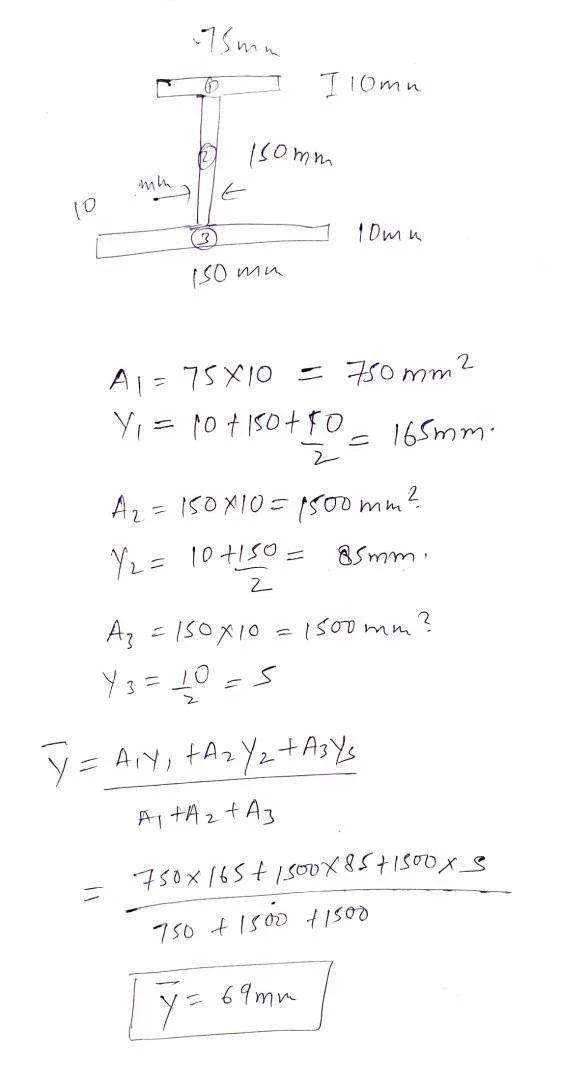 75mm
①
I 10mm
②
150mm
mm
10
③
10mm
150 mm
A1 = 75×10 = 750 mm²
Y1 = 10+150+10/2 = 165mm.
A2 = 150×10 = 1500 mm²
Y2 = 10+150/2 = 85mm.
A3 = 150×10 = 1500 mm²
Y3 = 10/2 = 5
ȳ = A1Y1+A2Y2+A3Y3 / A1+A2+A3
= 750×165+1500×85+1500×5 / 750+1500+1500
ȳ = 69mm